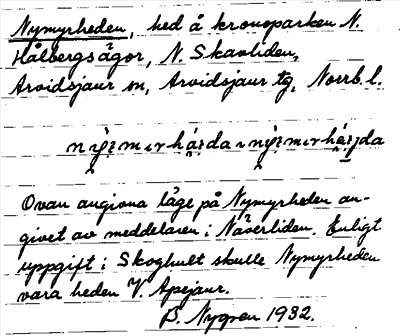 Nymyrheden, hed å kronoparken N.
Hålbergsågor, N. Skavliden,
Arvidsjaur sn, Arvidsjaur tg, Norrb. l.
Ovan angivna läge på Nymyrheden an-
givet av meddelaren i Näverliden. Enligt
uppgift i Skoghult skulle Nymyrheden
vara heden V. Apejaur.
B. Nygren 1932.